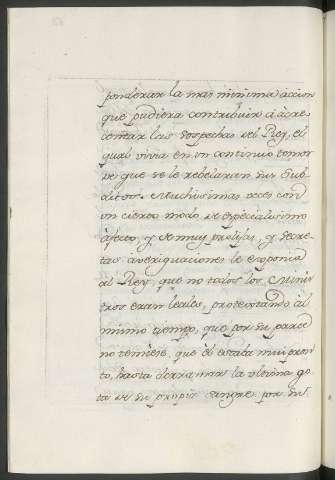 ponderar la mas minima accion
que pudiera contribuir à acre
centar las sospechas del Rey, el
qual vivia en un continuo temor
de que se le rebelaran sus Sub-
ditos. Muchissimas veces con
un cierto modo de especialissimo
afecto, y de muy prolijas, y secre
tas averiguaciones le exponia
al Rey, que no todos los Minis
tros eran leales, protestando àl
mismo tiempo, que por su parte
no temiese, que èl estaba mui pron
to, hasta derramar la ultima go
ta de su propia sangre por su